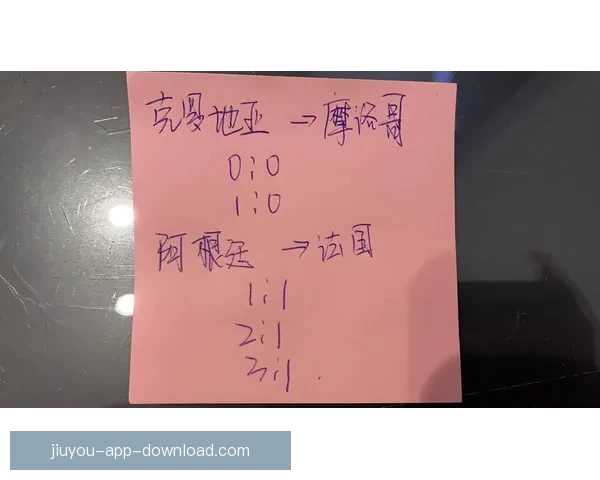 克罗地亚 → 摩洛哥
0:0
1:0
阿根廷 → 法国
1:1
2:1
3:1
jiuyou-app-download.com